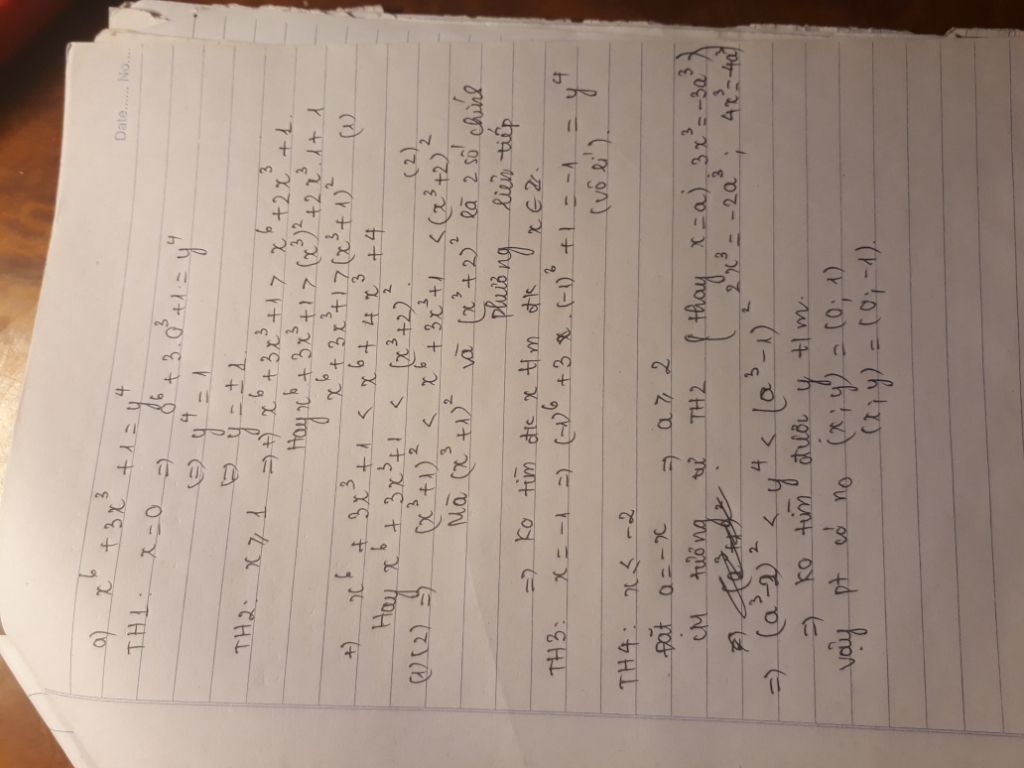 Date...... No...
a) x⁶ + 3x³ + 1 = y⁴
TH1: x = 0 => 0⁶ + 3.0³ + 1 = y⁴
(=) y⁴ = 1
(=) y = ±1
TH2: x ⩾ 1 => +) x⁶ + 3x³ + 1 > x⁶ + 2x³ + 1.
Hay x⁶ + 3x³ + 1 > (x³)² + 2x³.1 + 1
x⁶ + 3x³ + 1 > (x³ + 1)² (1)
+) x⁶ + 3x³ + 1 < x⁶ + 4x³ + 4
Hay x⁶ + 3x³ + 1 < (x³ + 2)². (2)
(1)(2) => (x³ + 1)² < x⁶ + 3x³ + 1 < (x³ + 2)²
Mà (x³ + 1)² và (x³ + 2)² là 2 số chính
phương liên tiếp
=> ko tìm đc x t/m đk x ∈ Z.
TH3: x = -1 => (-1)⁶ + 3x.(-1)³ + 1 = -1 = y⁴
(vô lí).
TH4: x ⩽ -2
Đặt a = -x => a ⩾ 2
CM tương tự TH2 (thay x = a) 3x³ = -3a³
2x³ = -2a³; 4x³ = -4a³)
=> (a³ - 2)² < y⁴ < (a³ - 1)²
=> ko tìm được y t/m.
Vậy pt có no (x; y) = (0; 1)
(x; y) = (0; -1).